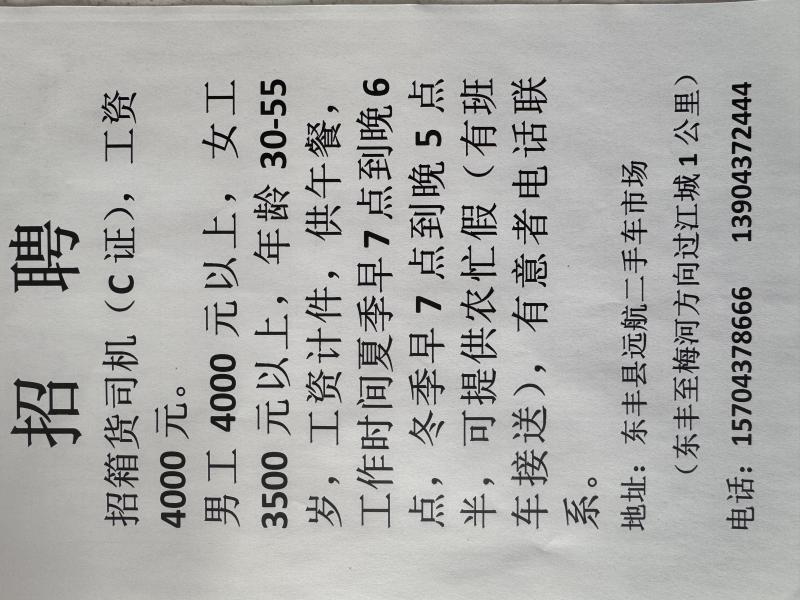 招 聘
招箱货司机（C 证），工资
4000 元。
男工 4000 元以上，女工
3500 元以上，年龄 30-55
岁，工资计件，供午餐，
工作时间夏季早 7 点到晚 6
点，冬季早 7 点到晚 5 点
半，可提供农忙假（有班
车接送），有意者电话联
系。
地址：东丰县远航二手车市场
（东丰至梅河方向过江城 1 公里）
电话：15704378666 13904372444